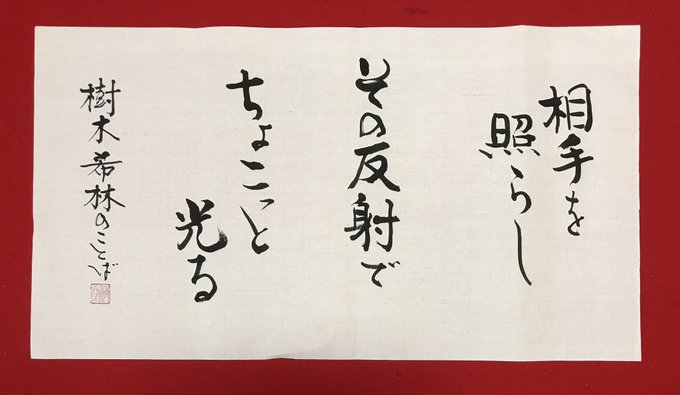 相手を
照らし
その反射で
ちょこっと
光る
樹木希林のことば